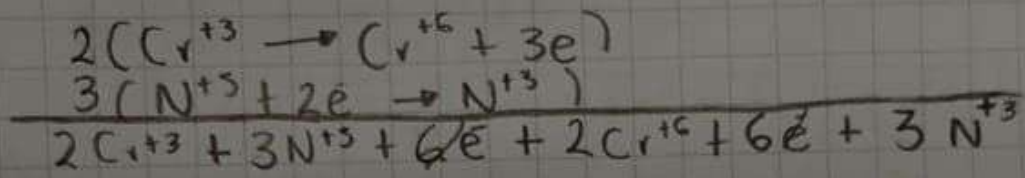 2(Cr⁺³ → Cr⁺⁶ + 3e)
3(N⁺⁵ + 2e → N⁺³)
2Cr⁺³ + 3N⁺⁵ + 6e + 2Cr⁺⁶ + 6e + 3N⁺³